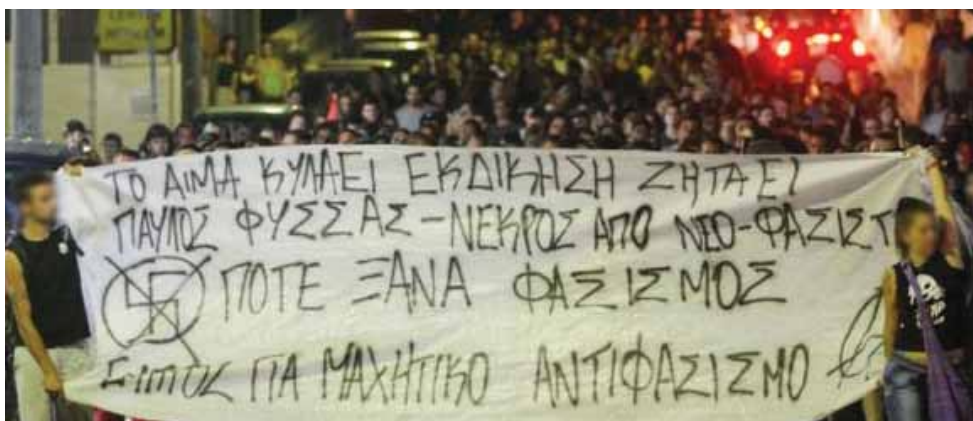 ΤΟ ΑΙΜΑ ΚΥΛΑΕΙ ΕΚΔΙΚΗΣΗ ΖΗΤΑΕΙ
ΠΑΥΛΟΣ ΦΥΣΣΑΣ - ΝΕΚΡΟΣ ΑΠΟ ΝΕΟ-ΦΑΣΙΣΤ
ΠΟΤΕ ΞΑΝΑ ΦΑΣΙΣΜΟΣ
ΓΙΑ ΜΑΧΗΤΙΚΟ ΑΝΤΙΦΑΣΙΣΜΟ